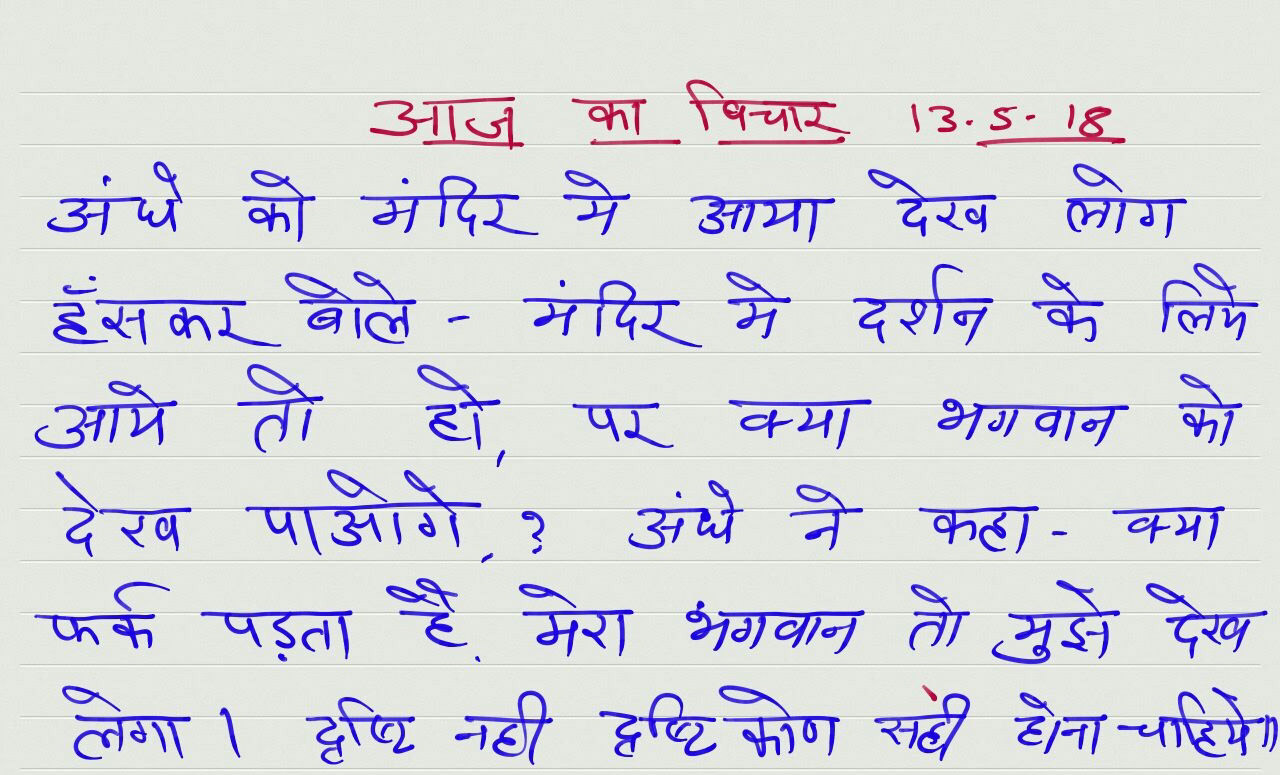 आज का विचार 13.5.18
अंधे को मंदिर मे आया देख लोग
हँसकर बोले - मंदिर मे दर्शन के लिये
आये तो हो, पर क्या भगवान को
देख पाओगे,? अंधे ने कहा - क्या
फर्क पड़ता है, मेरा भगवान तो मुझे देख
लेगा । दृष्टि नही दृष्टिकोण सही होना चाहिये॥